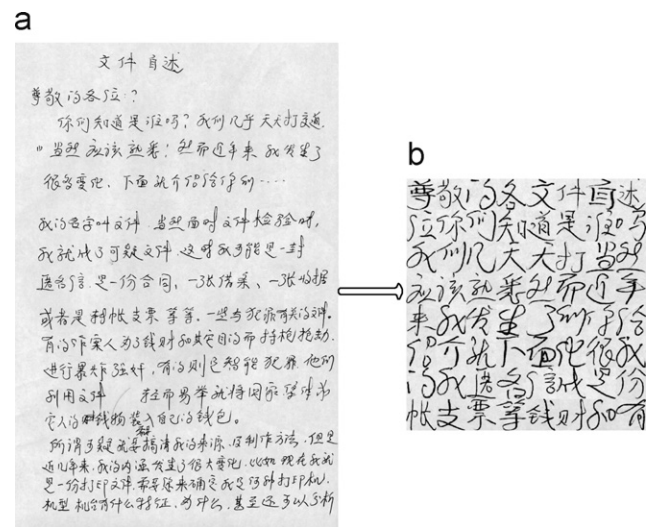 a
文件自述
尊敬的各位?
你们知道是谁吗?我们几乎天天打交道.
"当然应该熟悉!然而近年来我发生了
很多变化.下面就介绍给你们....
我的名字叫文件.当然面对文件检验时,
我就成了可疑文件.这时我可能是一封
匿名信.是一份合同,一张借条、一张收据
或者是转帐支票等等.一些与犯罪有关的文件.
有的作案人为了钱财和其它目的而持枪抢劫.
进行暴炸强奸.有的则是智能犯罪.他们
利用文件 轻而易举就将国家集体和
它人的钱物装入自己的钱包。
所谓可疑就要搞清我的来源.及制作方法.但是
近几年来.我的内涵发生了很大变化.比如现在我就
是一份打印文件.需要你来确定我是何种打印机.
机型机台有什么特征.为什么.甚至还可以分析
b
尊敬的各文件自述
位你们知道是谁吗
我们几天天打当然
应该熟悉然而近年
来我发生了
介就下面化很我
的我匿名信成是份
帐支票等钱财和有